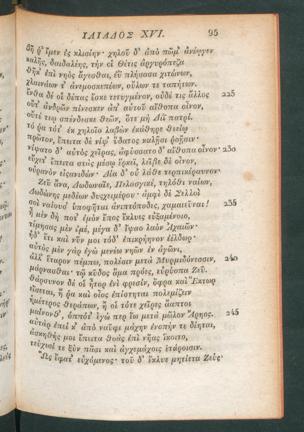 ΙΛΙΑΔΟΣ XVI. 95
βῆ ῥ᾽ ἴμεν ἐς κλισίην· χηλοῦ δ᾽ ἀπὸ πῶμ᾽ ἀνέῳγεν
καλῆς, δαιδαλέης, τήν οἱ Θέτις ἀργυρόπεζα
θῆκ᾽ ἐπὶ νηὸς ἄγεσθαι, εὖ πλήσασα χιτώνων,
χλαινάων τ᾽ ἀνεμοσκεπέων, οὔλων τε ταπήτων.
ἔνθα δέ οἱ δέπας ἔσκε τετυγμένον, οὐδέ τις ἄλλος 225
οὔτ᾽ ἀνδρῶν πίνεσκεν ἀπ᾽ αὐτοῦ αἴθοπα οἶνον,
οὔτε τῳ σπένδεσκε θεῶν, ὅτε μὴ Διῒ πατρί.
τό ῥα τότ᾽ ἐκ χηλοῖο λαβὼν ἐκάθηρε θεείῳ
πρῶτον, ἔπειτα δὲ νίψ᾽ ὕδατος καλῇσι ῥοῇσιν·
νίψατο δ᾽ αὐτὸς χεῖρας, ἀφύσσατο δ᾽ αἴθοπα οἶνον· 230
εὔχετ᾽ ἔπειτα στὰς μέσῳ ἕρκεϊ, λεῖβε δὲ οἶνον,
οὐρανὸν εἰσανιδών· Δία δ᾽ οὐ λάθε τερπικέραυνον·
Ζεῦ ἄνα, Δωδωναῖε, Πελασγικὲ, τηλόθι ναίων,
Δωδώνης μεδέων δυσχειμέρου· ἀμφὶ δὲ Σελλοὶ
σοὶ ναίουσ᾽ ὑποφῆται ἀνιπτόποδες, χαμαιεῦναι! 235
ἠ μὲν δή ποτ᾽ ἐμὸν ἔπος ἔκλυες εὐξαμένοιο,
τίμησας μὲν ἐμὲ, μέγα δ᾽ ἴψαο λαὸν Ἀχαιῶν·
ἠδ᾽ ἔτι καὶ νῦν μοι τόδ᾽ ἐπικρήηνον ἐέλδωρ·
αὐτὸς μὲν γὰρ ἐγὼ μενέω νηῶν ἐν ἀγῶνι,
ἀλλ᾽ ἕταρον πέμπω, πολέσιν μετὰ Μυρμιδόνεσσιν, 240
μάρνασθαι· τῷ κῦδος ἅμα πρόες, εὐρύοπα Ζεῦ.
θάρσυνον δέ οἱ ἦτορ ἐνὶ φρεσὶν, ὄφρα καὶ Ἕκτωρ
εἴσεται, ἤ ῥα καὶ οἶος ἐπίστηται πολεμίζειν
ἡμέτερος θεράπων, ἤ οἱ τότε χεῖρες ἄαπτοι
μαίνονθ᾽, ὁππότ᾽ ἐγώ περ ἴω μετὰ μῶλον Ἄρηος. 245
αὐτὰρ ἐπεί κ᾽ ἀπὸ ναῦφι μάχην ἐνοπήν τε δίηται,
ἀσκηθής μοι ἔπειτα θοὰς ἐπὶ νῆας ἵκοιτο,
τεύχεσί τε ξὺν πᾶσι καὶ ἀγχεμάχοις ἑτάροισιν.
Ὣς ἔφατ᾽ εὐχόμενος· τοῦ δ᾽ ἔκλυε μητίετα Ζεύς·